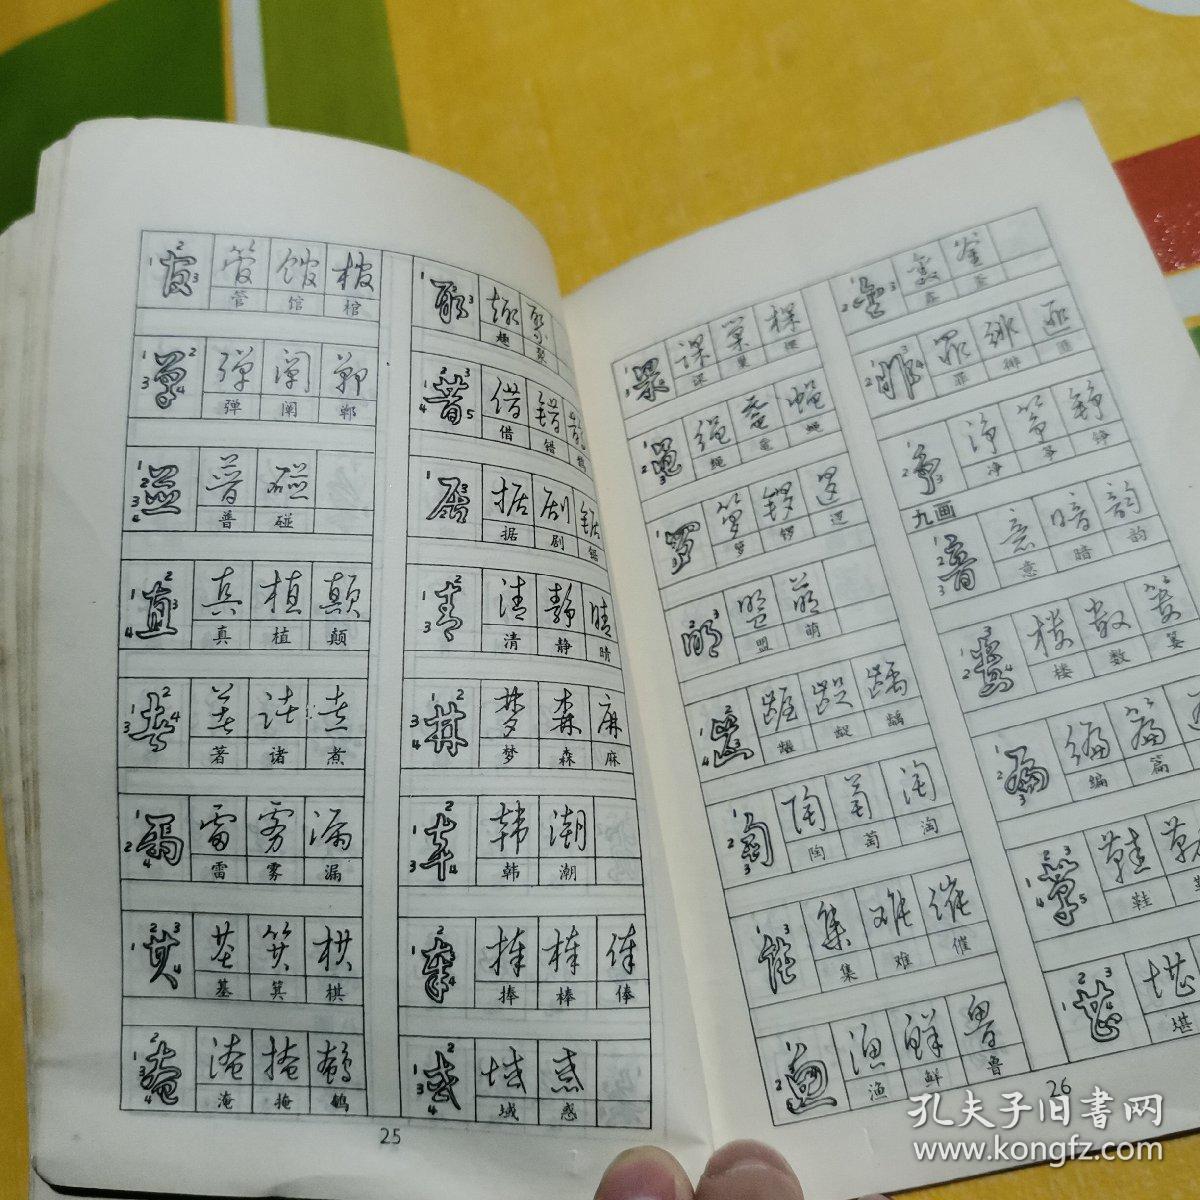 管 馆 棺
弹 阐 郸
普 碰
真 植 颠
著 诸 煮
雷 雾 漏
基 箕 棋
淹 掩 鹌
趣 聚
借 错 鹊
据 剧 锯
清 静 晴
梦 森 麻
韩 潮
捧 棒 俸
域 惑
25
课 巢 棵
绳 竜 蝇
箩 锣 逻
盟 萌
陶 萄 淘
集 难 催
渔 鲜 鲁
菲 徘 匪
净 筝 铮
九画
意 暗 韵
楼 数 篓
编 篇
鞋
堪
26
孔夫子旧书网
www.kongfz.com